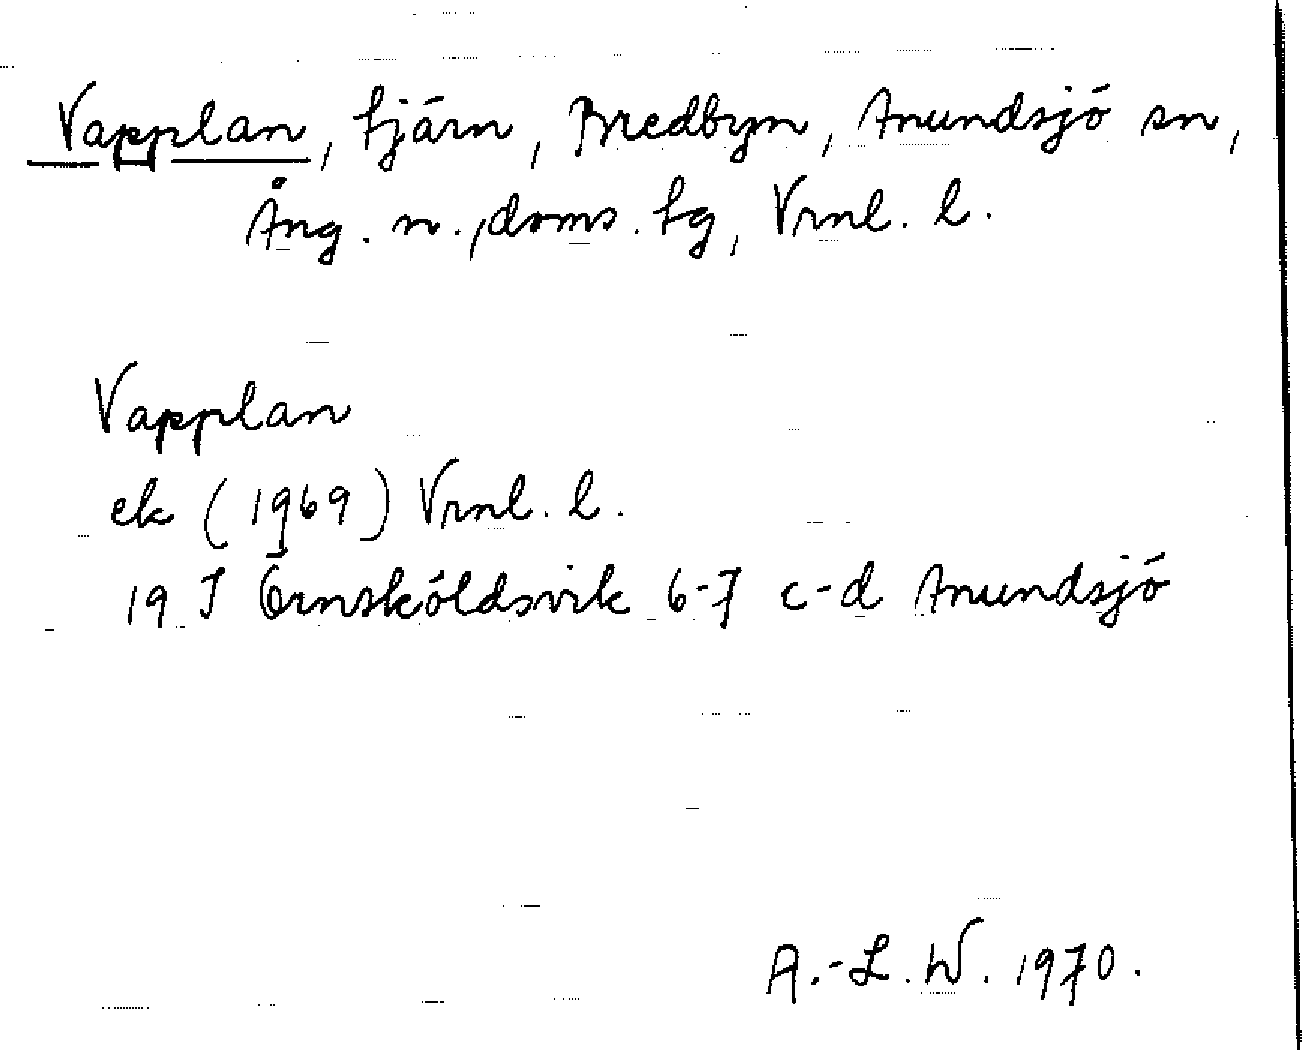 Vapplan, tjärn, Bredbyn, Anundsjö sn,
Ång. n., doms. lg, Vrnl. l.
Vapplan
ek (1969) Vrnl. l.
19 I Örnsköldsvik 6-7 c-d Anundsjö
A.-L. W. 1970.